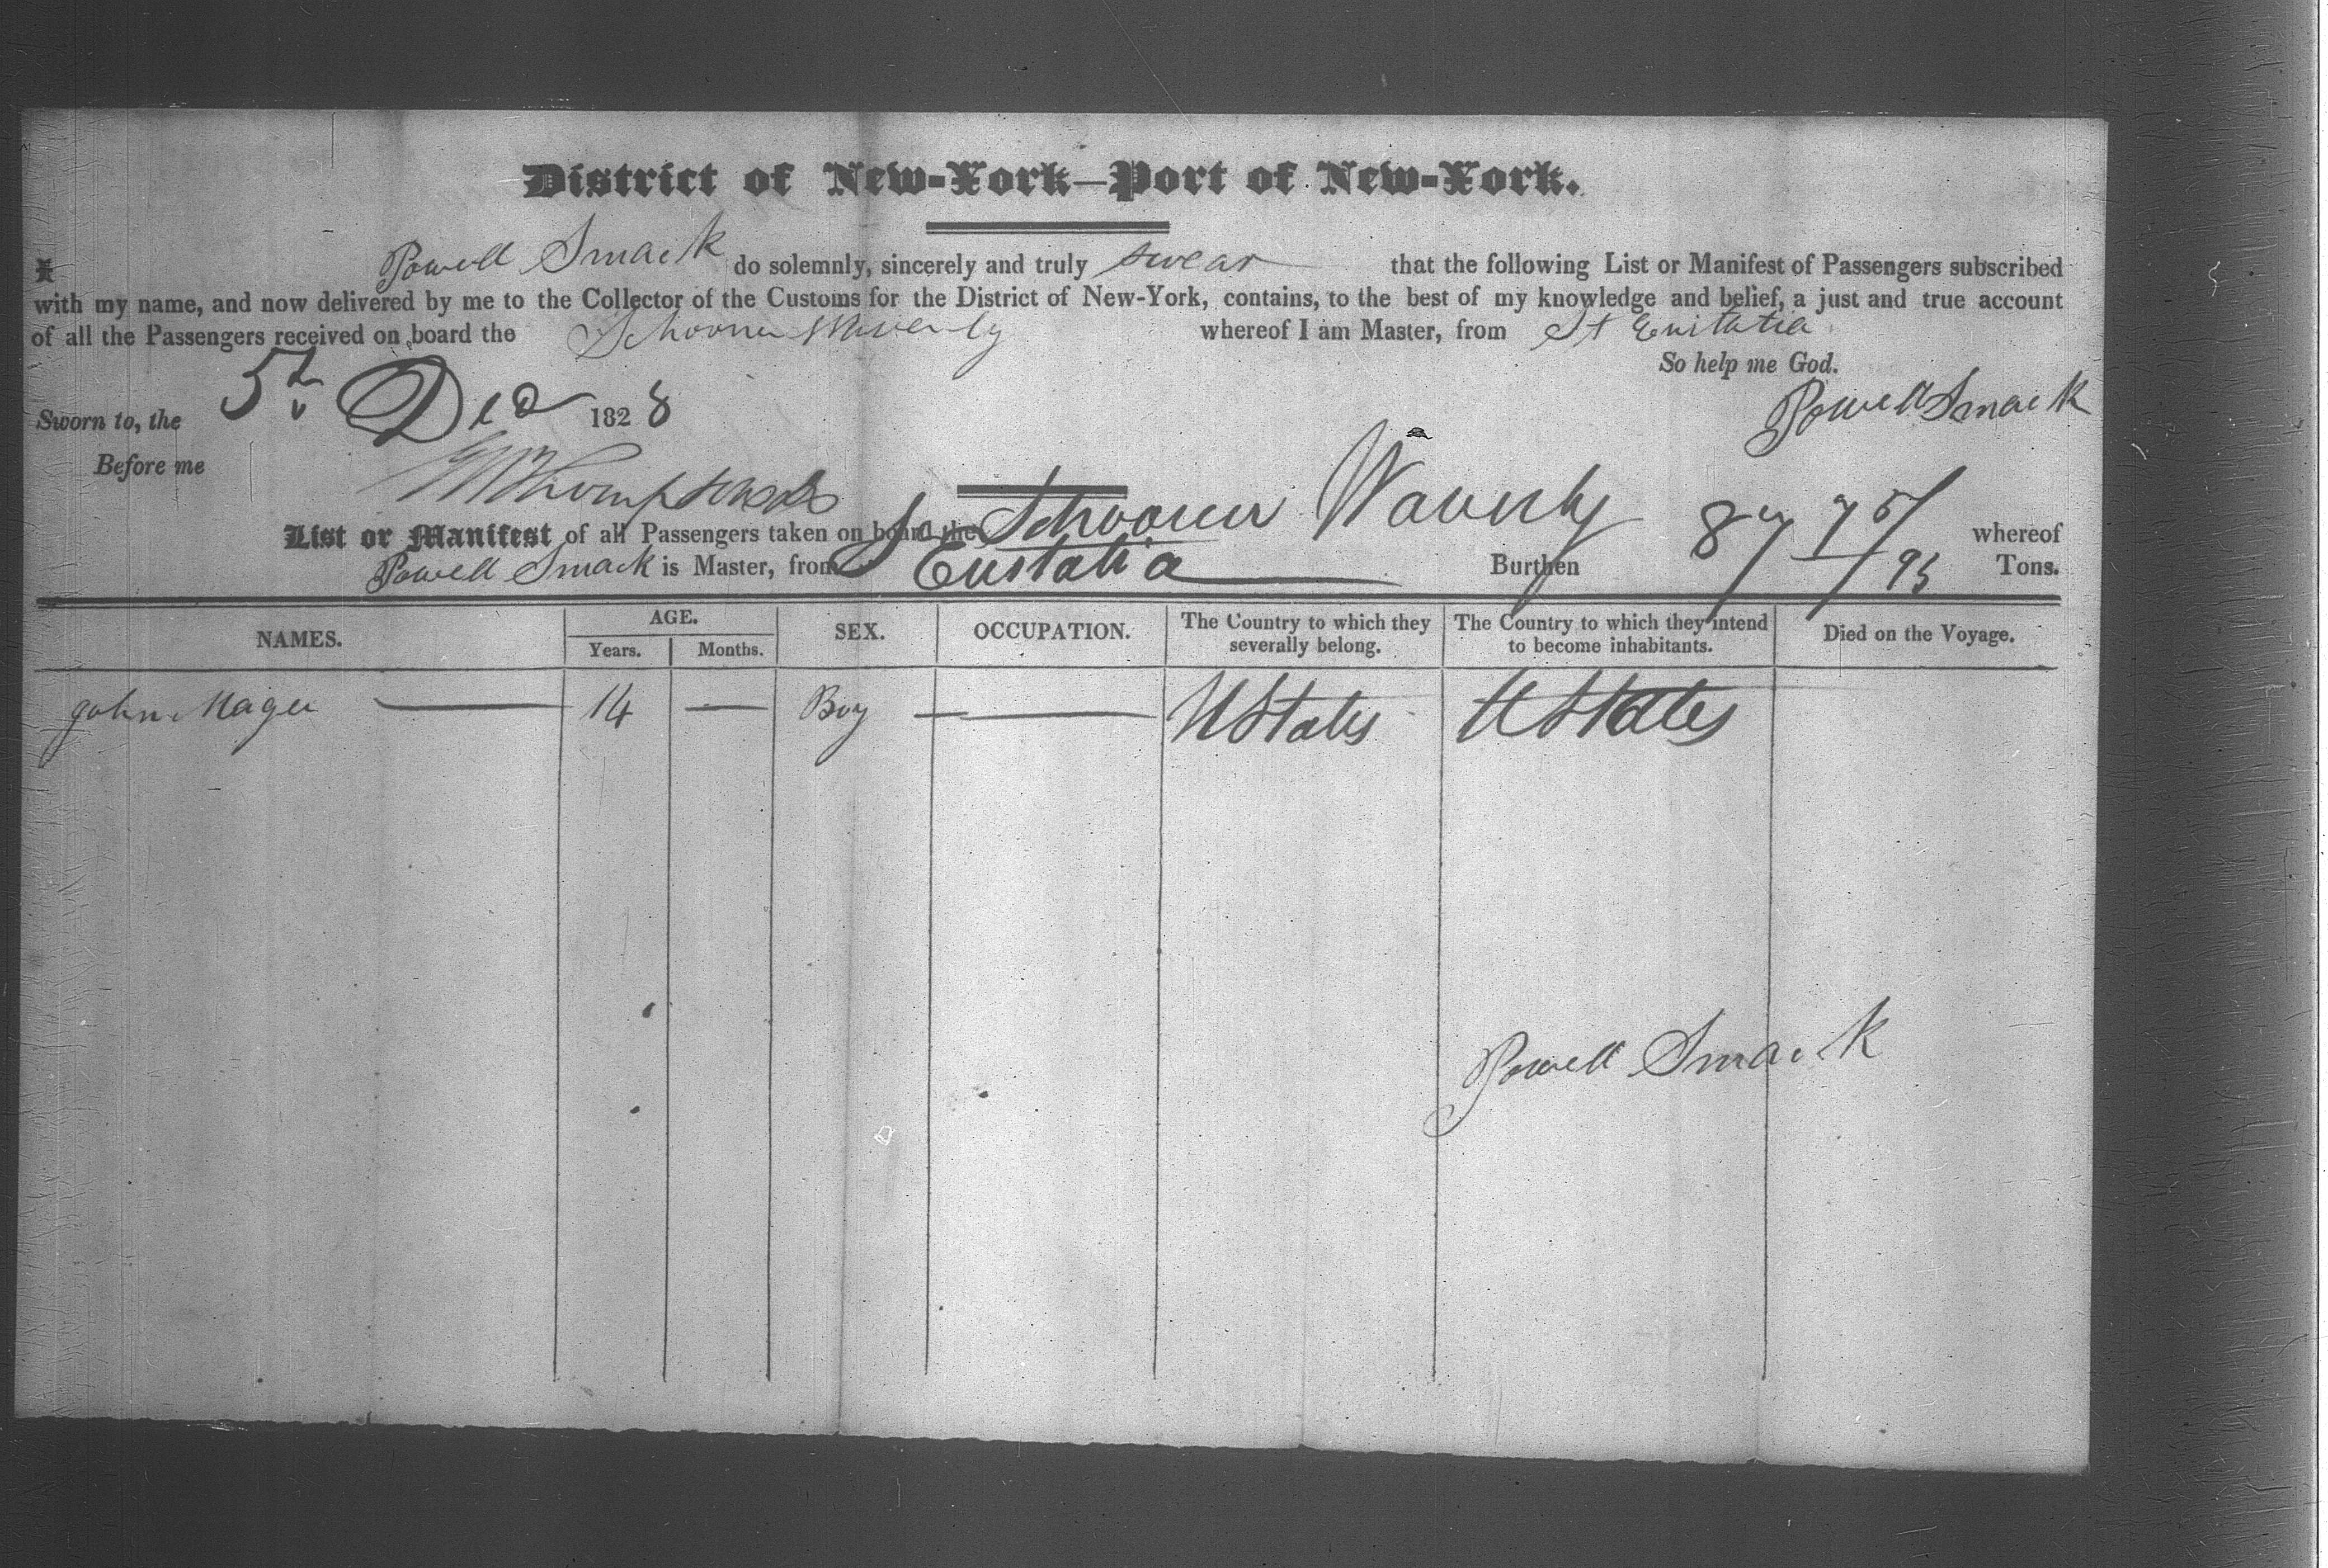 District of New-York—Port of New-York.
I Powell Smack do solemnly, sincerely and truly swear that the following List or Manifest of Passengers subscribed
with my name, and now delivered by me to the Collector of the Customs for the District of New-York, contains, to the best of my knowledge and belief, a just and true account
of all the Passengers received on board the Schooner Waverly whereof I am Master, from St Eustatia
So help me God.
Sworn to, the 5th Dec 1828 Powell Smack
Before me
List or Manifest of all Passengers taken on board the Schooner Waverly whereof
Powell Smack is Master, from St Eustatia Burthen 87 75/95 Tons.
NAMES. AGE. Years. Months. SEX. OCCUPATION. The Country to which they severally belong. The Country to which they intend to become inhabitants. Died on the Voyage.
John Mager — 14 — Boy — U States U States
Powell Smack